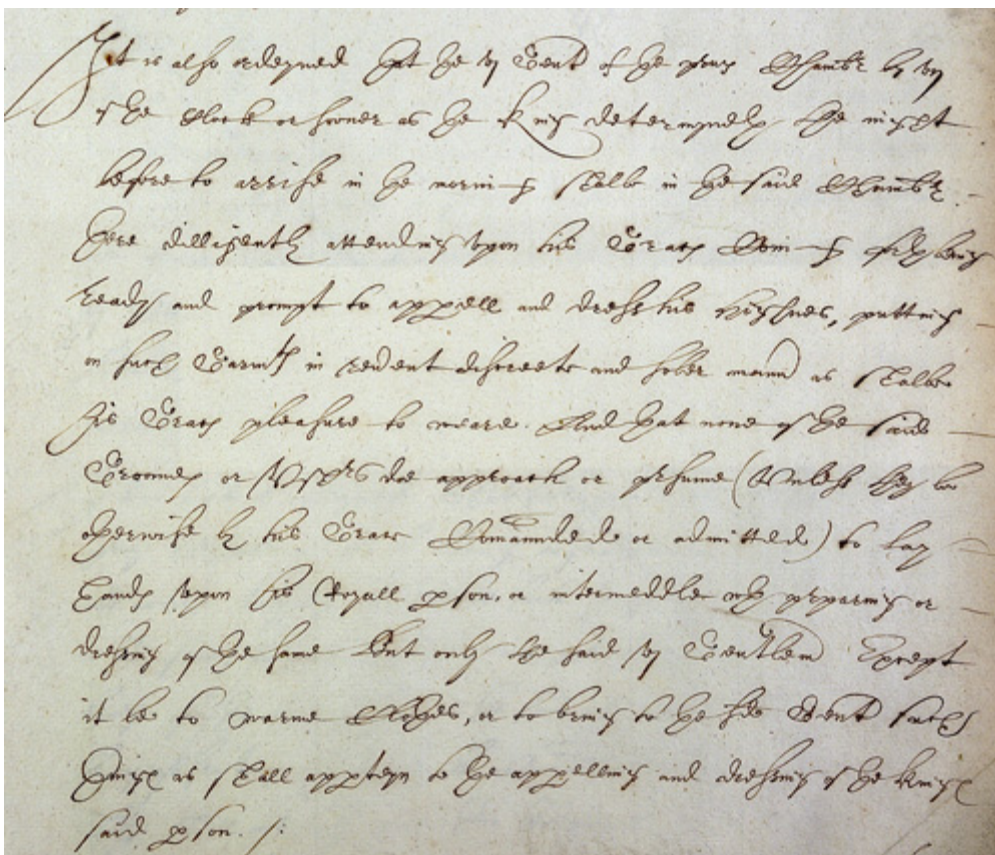 It is also ordeyned that the vj Gent of the privy Chambr by vij
of the Clock or sooner as the King determyneth the night
before to arrise in the morning shalbe in the said Chambr
there dilligently attending vpon his Grace Coming forth being
ready and prompt to apparell and dresse his Highnes, putting
on such Garmts in reverent discreete and sober mannr as shalbe
his Graces pleasure to weare. And that none of the said
Groomes or Vshrs doe approach or prsume (Vnlesse they be
otherwise by his Grace Comaunded or admitted) to lay
hands vpon his Royall pson, or intermeddle wth prparing or
dressing of the same But only the said vj Gentlem Except
it be to warme Clothes, or to bring to the sd Gent such
things as shall appteyn to the appelling and dressing of the kings
said pson. /: